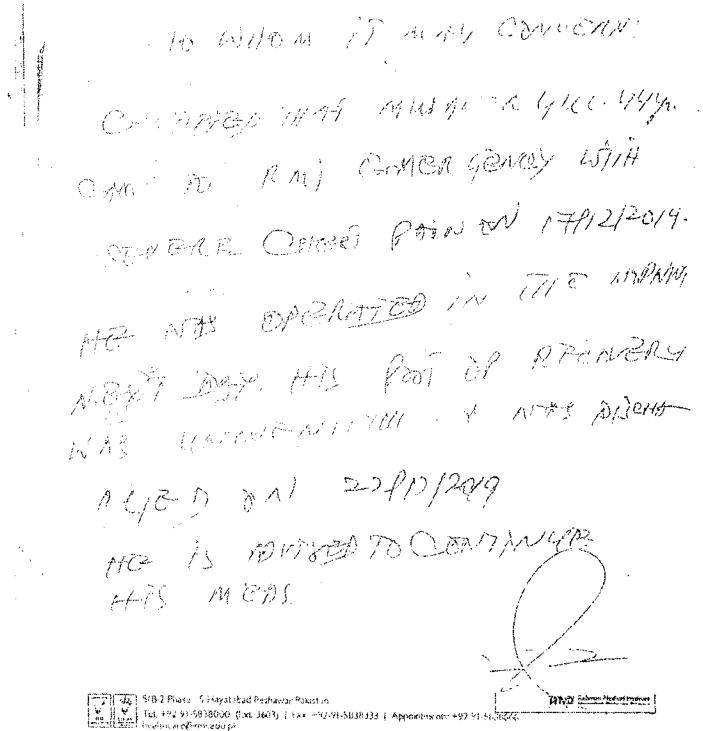 TO WHOM IT MAY CONCERN:
CERTIFIED THAT 44y.
CAME TO RMI EMERGENCY WITH
SEVERE CHEST PAIN ON 17/12/2019.
HE WAS OPERATED IN THE
NEXT DAY. HIS POST OP RECOVERY
WAS UNEVENTFUL & WAS DISCHA-
RGED ON /2019
HE IS ADVISED TO CONTINUE
HIS MEDS.
5/B-2 Phase - 5 Hayatabad Peshawar Pakistan
Tel: +92-91-5838000 (Ext. 3603) | Fax: +92-91-5838333 | Appointment: +92 91
RMI Rehman Medical Institute